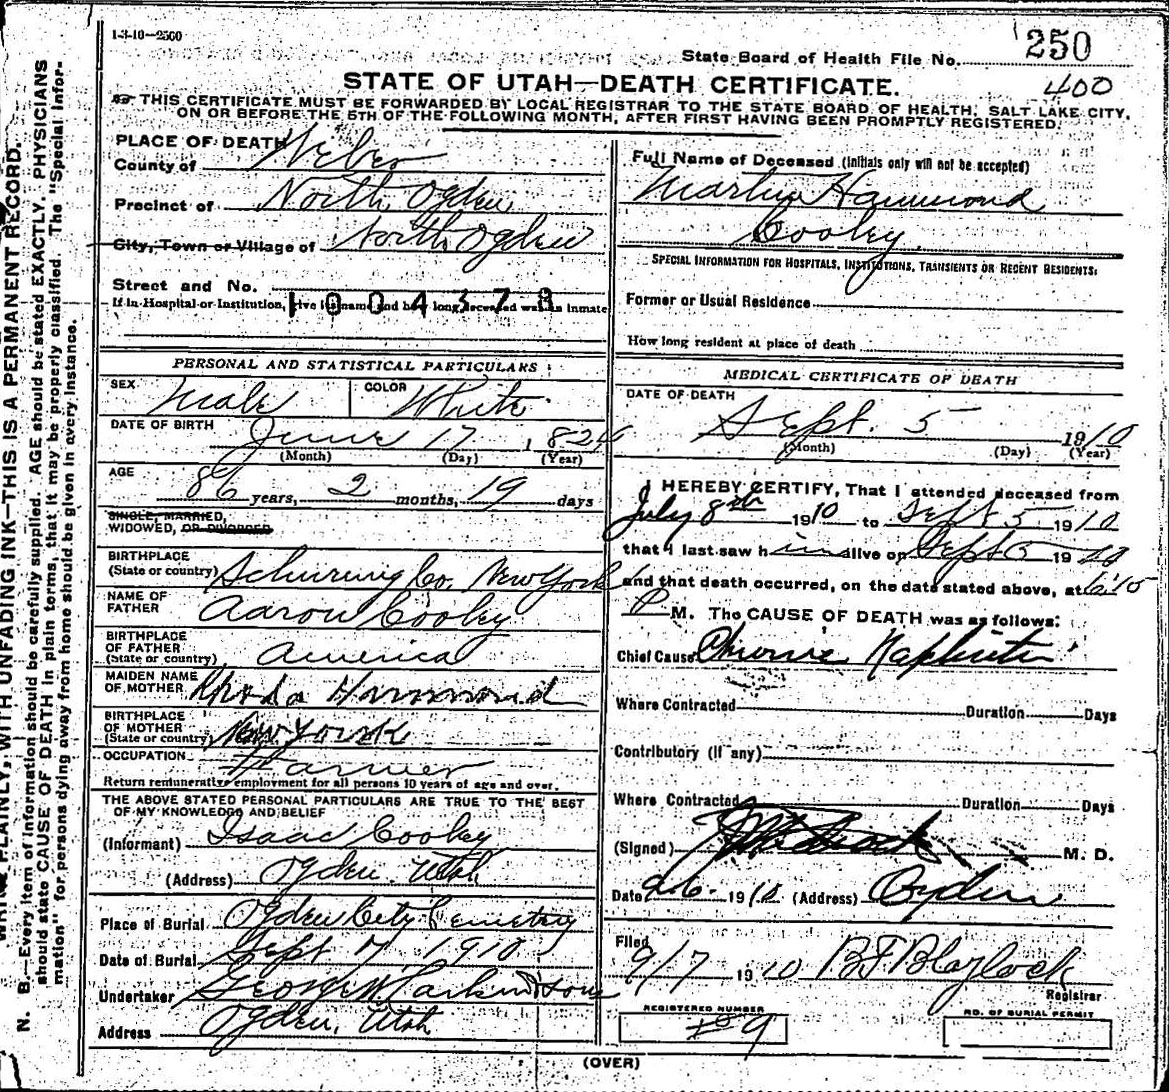 1-3-10-2500
State Board of Health File No. 250
400
STATE OF UTAH—DEATH CERTIFICATE.
THIS CERTIFICATE MUST BE FORWARDED BY LOCAL REGISTRAR TO THE STATE BOARD OF HEALTH, SALT LAKE CITY,
ON OR BEFORE THE 5TH OF THE FOLLOWING MONTH, AFTER FIRST HAVING BEEN PROMPTLY REGISTERED.
PLACE OF DEATH
County of Weber
Precinct of North Ogden
City, Town or Village of North Ogden
Street and No.
If in Hospital or Institution, give its name and how long deceased was an inmate
1004378
PERSONAL AND STATISTICAL PARTICULARS
SEX Male COLOR White
DATE OF BIRTH June 17 1824
(Month) (Day) (Year)
AGE
86 years, 2 months, 19 days
SINGLE, MARRIED,
WIDOWED, OR DIVORCED
BIRTHPLACE
(State or country) Co. New York
NAME OF
FATHER Aaron Cooley
BIRTHPLACE
OF FATHER
(State or country) America
MAIDEN NAME
OF MOTHER Rhoda Hammond
BIRTHPLACE
OF MOTHER
(State or country) New York
OCCUPATION Farmer
Return remunerative employment for all persons 10 years of age and over.
THE ABOVE STATED PERSONAL PARTICULARS ARE TRUE TO THE BEST
OF MY KNOWLEDGE AND BELIEF
(Informant) Isaac Cooley
(Address) Ogden Utah
Place of Burial Ogden City Cemetery
Date of Burial Sept 7 1910
Undertaker George W Larkin & Sons
Address Ogden, Utah
Full Name of Deceased (Initials only will not be accepted)
Hammond
Cooley
SPECIAL INFORMATION FOR HOSPITALS, INSTITUTIONS, TRANSIENTS OR RECENT RESIDENTS:
Former or Usual Residence
How long resident at place of death
MEDICAL CERTIFICATE OF DEATH
DATE OF DEATH
Sept. 5 1910
(Month) (Day) (Year)
I HEREBY CERTIFY, That I attended deceased from
July 8th 1910 to Sept 5 1910
that I last saw him alive on Sept 5 1910
and that death occurred, on the date stated above, at 6:15
P M. The CAUSE OF DEATH was as follows:
Chief Cause Chronic
Where Contracted Duration Days
Contributory (if any)
Where Contracted Duration Days
(Signed) M. D.
Date 9-6- 1910 (Address) Ogden
Filed
9/7 1910 B.F. Blaylock
Registrar
REGISTERED NUMBER
9
NO. OF BURIAL PERMIT
(OVER)
PLAINLY, WITH UNFADING INK—THIS IS A PERMANENT RECORD.
N. B.—Every item of information should be carefully supplied. AGE should be stated EXACTLY. PHYSICIANS
should state CAUSE OF DEATH in plain terms, that it may be properly classified. The "Special Infor-
mation" for persons dying away from home should be given in every instance.